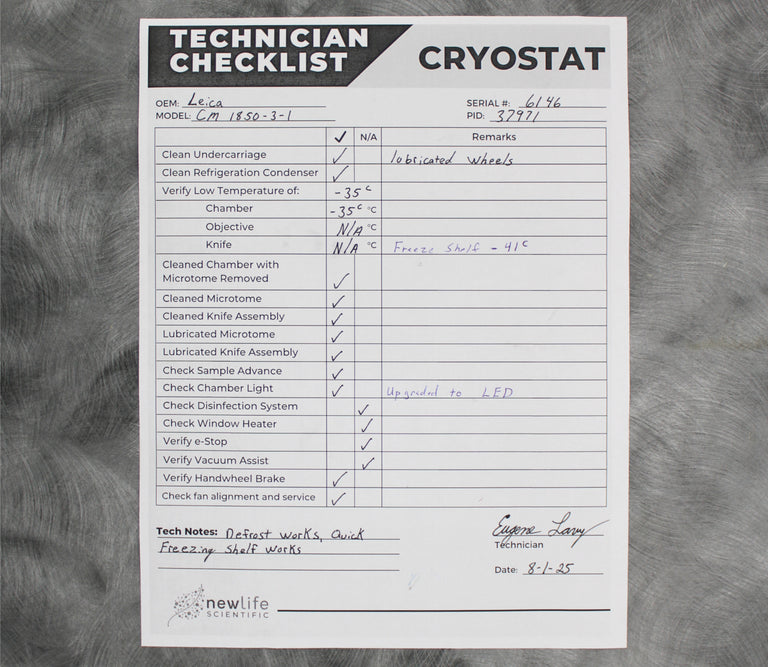 TECHNICIAN
CHECKLIST
CRYOSTAT
OEM: Leica
SERIAL #: 6146
MODEL: CM 1850-3-1
PID: 37971
✓ N/A Remarks
Clean Undercarriage ✓ lobricated wheels
Clean Refrigeration Condenser ✓
Verify Low Temperature of: -35 c
Chamber -35 c °C
Objective N/A °C
Knife N/A °C Freeze Shelf - 41 c
Cleaned Chamber with
Microtome Removed ✓
Cleaned Microtome ✓
Cleaned Knife Assembly ✓
Lubricated Microtome ✓
Lubricated Knife Assembly ✓
Check Sample Advance ✓
Check Chamber Light ✓ Upgraded to LED
Check Disinfection System ✓
Check Window Heater ✓
Verify e-Stop ✓
Verify Vacuum Assist ✓
Verify Handwheel Brake ✓
Check fan alignment and service ✓
Tech Notes: Defrost works, Quick
Freezing Shelf works
Eugene
Technician
Date: 8-1-25
newlife
SCIENTIFIC